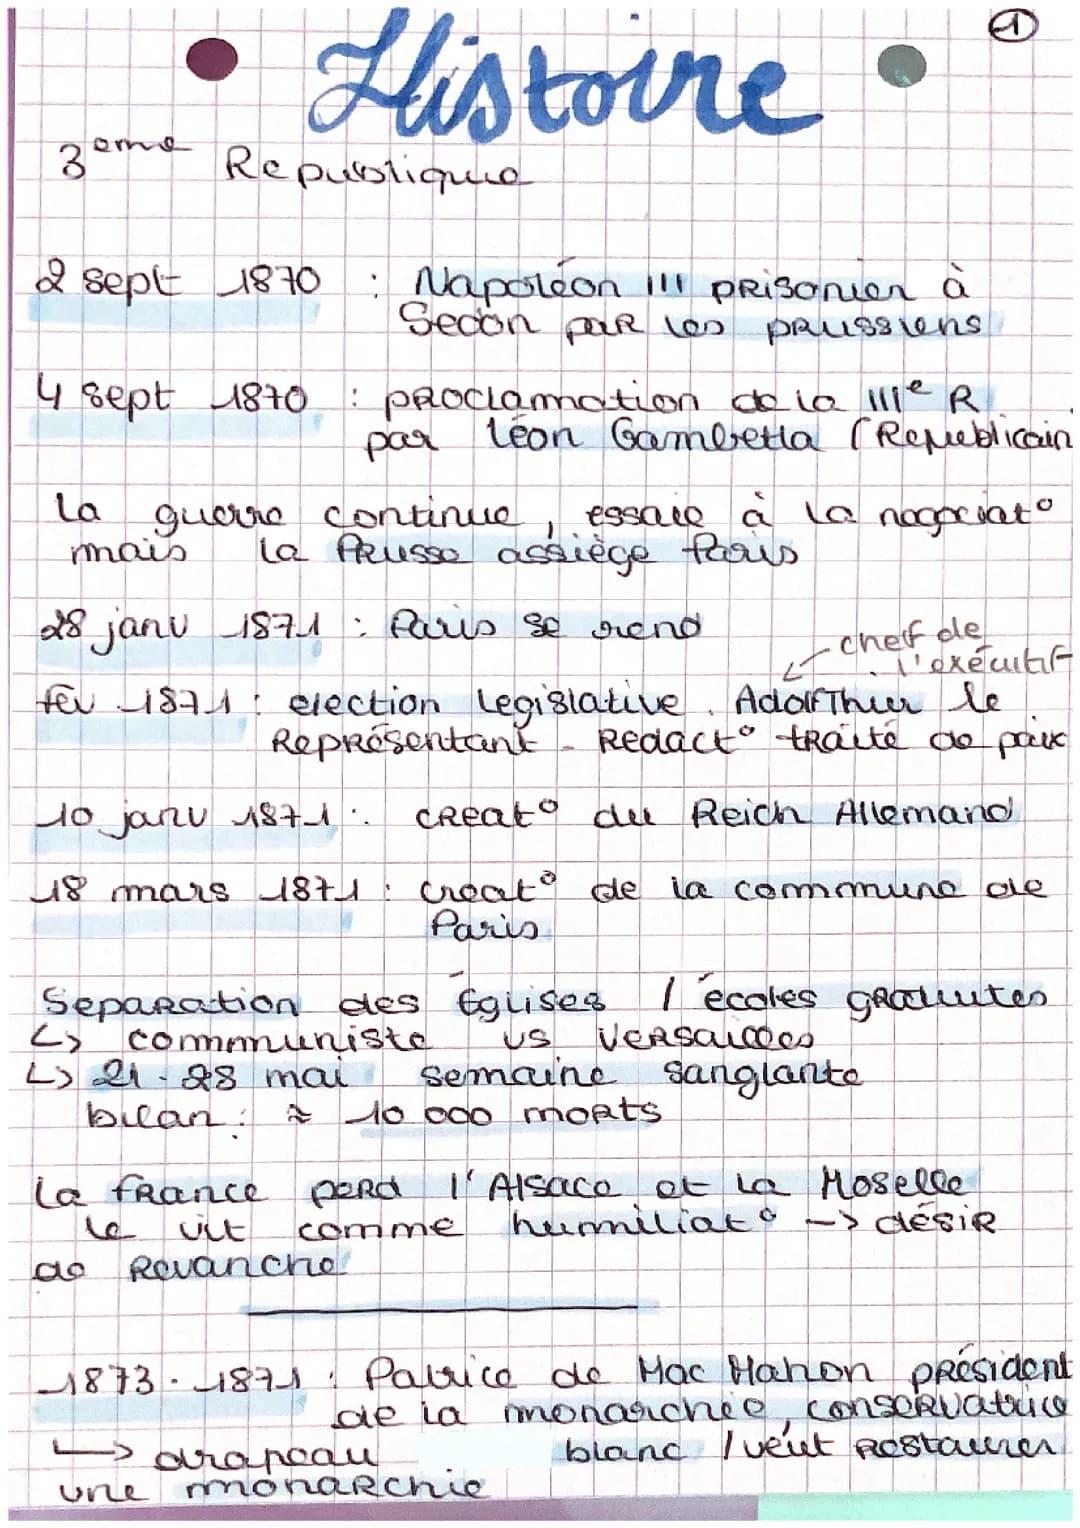 1
Histoire
3eme Republique
2 sept 1870 : Napoléon III prisonier à
Sedan par les prussiens
4 sept 1870 : proclamation de la IIIe R
par Léon Gambetta (Republicain
la guerre continue, essaie à la negociat°
mais la Prusse assiège Paris
28 janv 1871 : Paris se rend
chef de
l'exécutif
fev 1871 : election legislative. Adolf Thier le
Représentant - Redact° traité de paix
10 janv 1871 : creat° du Reich Allemand
18 mars 1871 : creat° de la commune de
Paris
Separation des Églises / écoles gratuites
↳ communiste vs Versailles
↳ 21-28 mai semaine sanglante
bilan : ≈ 10 000 morts
La france perd l'Alsace et la Moselle
le vit comme humiliat° -> désir
de Revanche
1873-1871 : Patrice de Mac Mahon président
de la monarchie, conservatrice
↳ drapeau blanc / veut restaurer
une monarchie